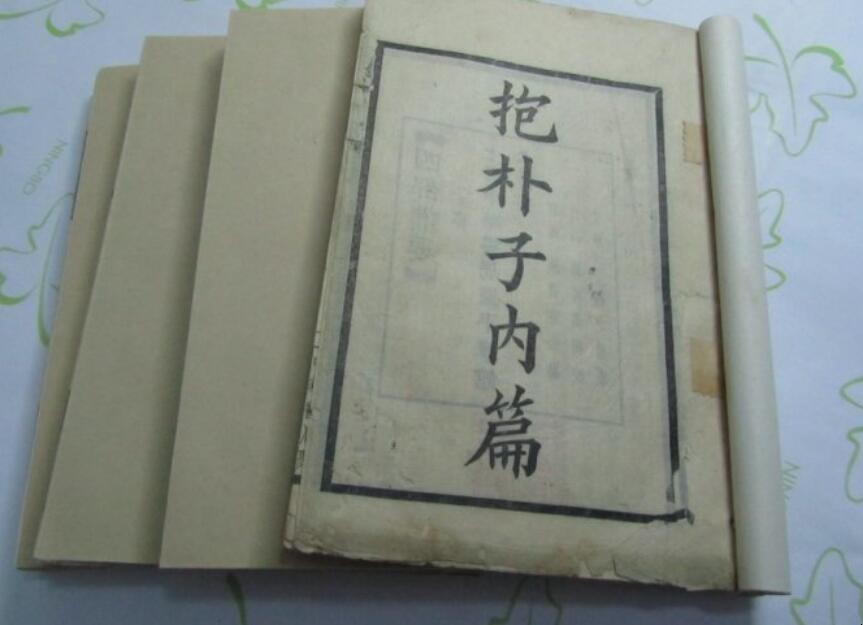 抱朴子内篇
NINGBO